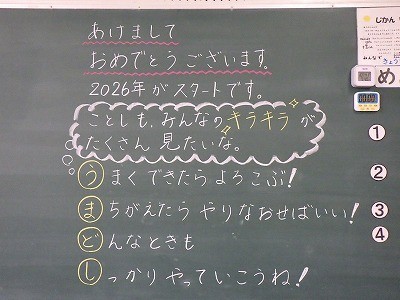 あけまして
おめでとうございます。
2026年がスタートです。
ことしも、みんなのキラキラが
たくさん見たいな。
うまくできたらよろこぶ!
まちがえたらやりなおせばいい!
どんなときも
しっかりやっていこうね!
じかん
め
①
②
③
④